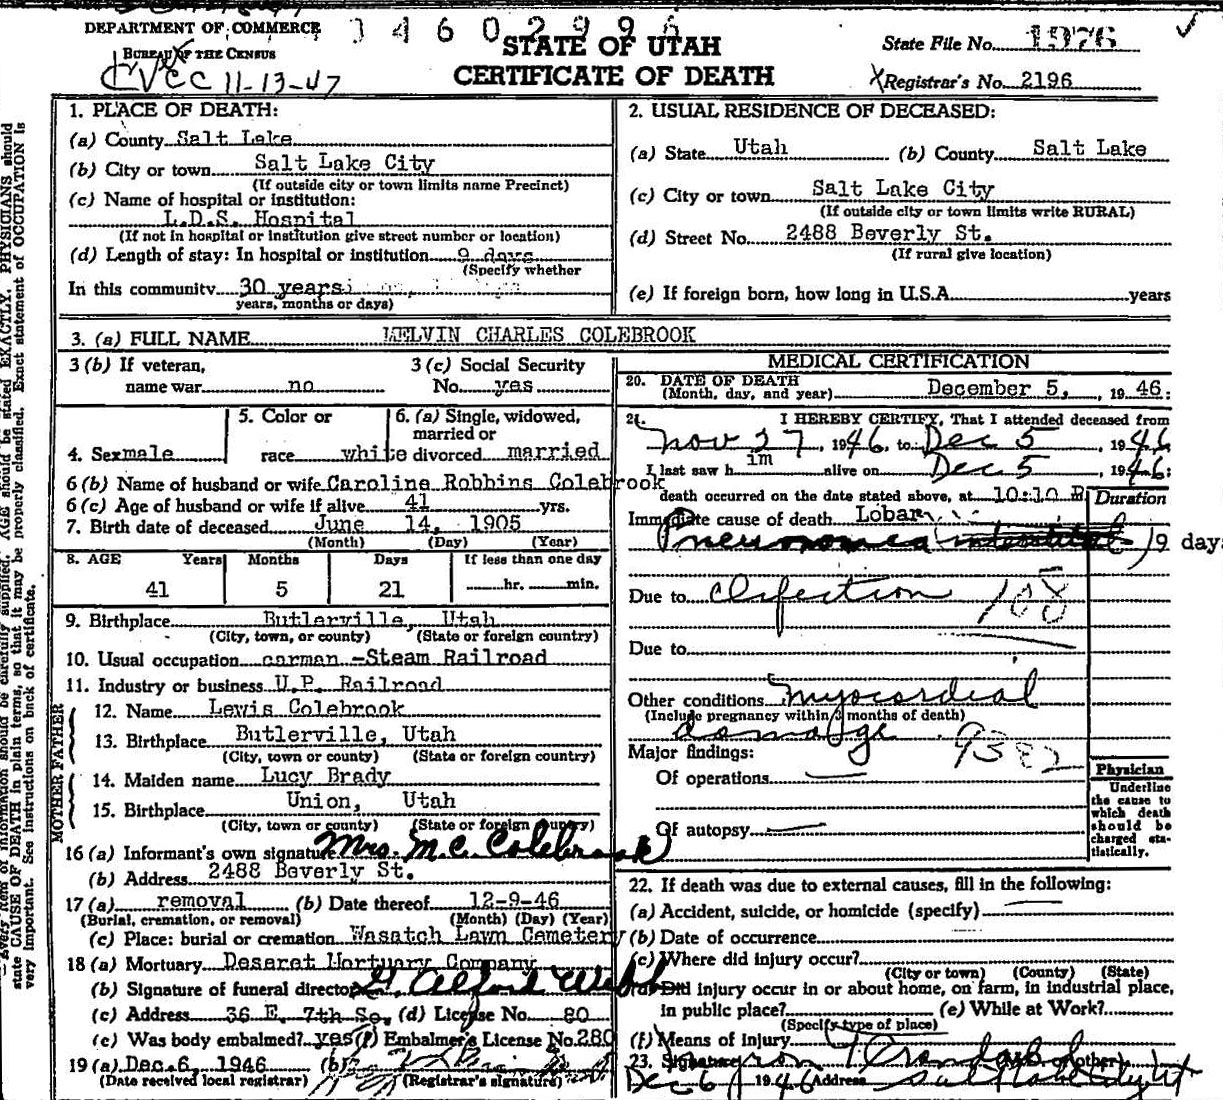 DEPARTMENT OF COMMERCE
BUREAU OF THE CENSUS
CVCC 11-13-47
34602996
STATE OF UTAH
CERTIFICATE OF DEATH
State File No. 1976
Registrar's No. 2196
1. PLACE OF DEATH:
(a) County Salt Lake
(b) City or town Salt Lake City
(If outside city or town limits name Precinct)
(c) Name of hospital or institution:
L.D.S. Hospital
(If not in hospital or institution give street number or location)
(d) Length of stay: In hospital or institution 9 days
(Specify whether
In this community 30 years
years, months or days)
2. USUAL RESIDENCE OF DECEASED:
(a) State Utah (b) County Salt Lake
(c) City or town Salt Lake City
(If outside city or town limits write RURAL)
(d) Street No. 2488 Beverly St.
(If rural give location)
(e) If foreign born, how long in U.S.A. years
3. (a) FULL NAME MELVIN CHARLES COLEBROOK
3 (b) If veteran,
name war no
3 (c) Social Security
No. yes
4. Sex male
5. Color or
race white
6. (a) Single, widowed,
married or
divorced married
6 (b) Name of husband or wife Caroline Robbins Colebrook
6 (c) Age of husband or wife if alive 41 yrs.
7. Birth date of deceased June 14, 1905
(Month) (Day) (Year)
8. AGE Years Months Days If less than one day
41 5 21 hr. min.
9. Birthplace Butlerville, Utah
(City, town, or county) (State or foreign country)
10. Usual occupation carman -Steam Railroad
11. Industry or business U.P. Railroad
FATHER
12. Name Lewis Colebrook
13. Birthplace Butlerville, Utah
(City, town or county) (State or foreign country)
MOTHER
14. Maiden name Lucy Brady
15. Birthplace Union, Utah
(City, town or county) (State or foreign country)
16 (a) Informant's own signature Mrs. M. C. Colebrook
(b) Address 2488 Beverly St.
17 (a) removal (b) Date thereof 12-9-46
(Burial, cremation, or removal) (Month) (Day) (Year)
(c) Place: burial or cremation Wasatch Lawn Cemetery
18 (a) Mortuary Deseret Mortuary Company
(b) Signature of funeral director Alford Webb
(c) Address 36 E. 7th So. (d) License No. 80
(e) Was body embalmed? yes (f) Embalmer's License No. 280
19 (a) Dec. 6, 1946 (b)
(Date received local registrar) (Registrar's signature)
MEDICAL CERTIFICATION
20. DATE OF DEATH
(Month, day, and year) December 5, 1946:
21. I HEREBY CERTIFY, That I attended deceased from
Nov 27, 1946, to Dec 5 1946
I last saw him alive on Dec 5, 1946:
death occurred on the date stated above, at 10:10 P Duration
Immediate cause of death Lobar
Pneumonia (interstitial) 9 days
Due to Infection 108
Due to
Other conditions myocardial
(Include pregnancy within 3 months of death)
damage 9382
Major findings:
Of operations
Of autopsy
Physician
Underline
the cause to
which death
should be
charged sta-
tistically.
22. If death was due to external causes, fill in the following:
(a) Accident, suicide, or homicide (specify)
(b) Date of occurrence
(c) Where did injury occur?
(City or town) (County) (State)
(d) Did injury occur in or about home, on farm, in industrial place,
in public place? (e) While at Work?
(Specify type of place)
(f) Means of injury
23. Signature other)
Dec 6 1946 Address Salt Lake City Ut
Every item of information should be carefully supplied. AGE should be stated EXACTLY. PHYSICIANS should
state CAUSE OF DEATH in plain terms, so that it may be properly classified. Exact statement of OCCUPATION is
very important. See instructions on back of certificate.